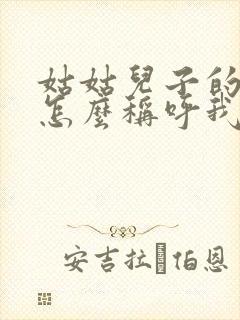 姑姑兒子的
怎麼稱呼我
安吉拉·伯恩